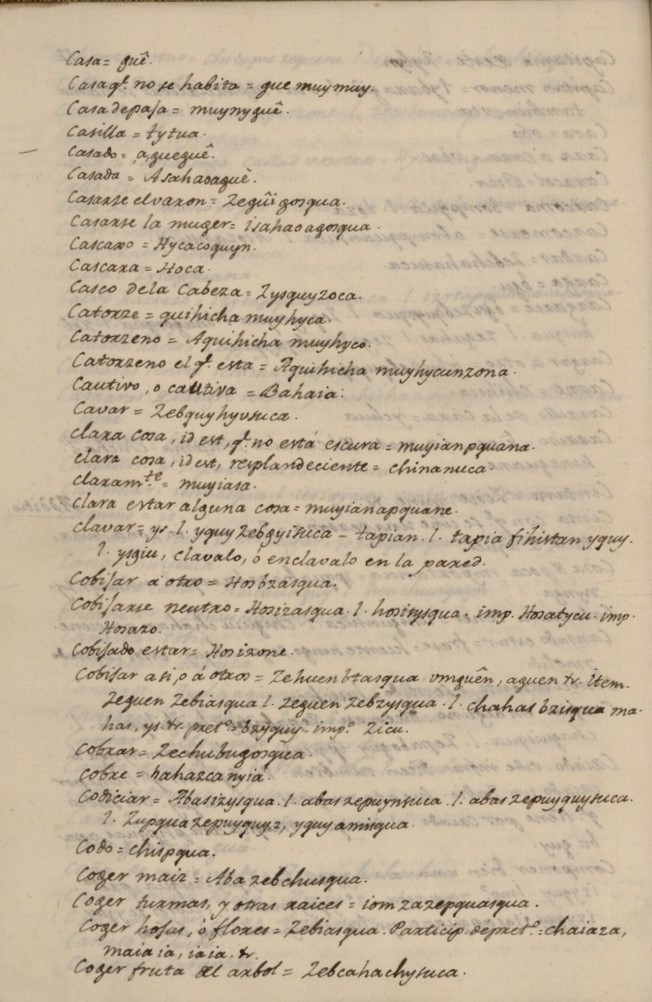 Casa = guê.
Casa q.^e no se habita = gue muymuy.
Casa de paja = muynyguê.
Casilla = tytua.
Casado = agueguê.
Casada = Asahaoaguê.
Casarse el varon = Zegûi gosqua.
Casarse la muger = isahaoagosqua.
Cascaxo = Hycacoquyn.
Cascara = Hoca.
Casco de la Cabeza = Zysquyzoca.
Catorze = quihicha muyhyca.
Catorzeno = Aquihicha muyhyco.
Catorzeno el q.^e esta = Aquihicha muyhycunzona.
Cautivo, o cautiva = Bahaia.
Cavar = Zebquyhyusuca.
Clara cosa, id est, q.^e no está escura = muyianpquana.
Clara cosa, id est, resplandeciente = chinanuca.
Claram.^te = muyiasa.
Clara estar alguna cosa = muyianapquane.
Clavar = ys. l. yquy zebgyisuca - tapian. l. tapia fihistan yquy.
l. ysgiu, clavalo, ò enclavalo en la pared.
Cobijar a otro = Hosbzasqua.
Cobijarse neutro = Hosizasqua. l. hosizysqua. imp. Hosatycu. imp.
Hosazo.
Cobijado estar = Hosizone.
Cobijar a si, o á otros = Zehuen btasqua umguên, aguen &. item.
Zeguen Zebiasqua l. zeguen zebzysqua. l. chahas bzisqua ma-
has, ys. &. pret.^o = bzyquy imp.^o Zicu.
Cobrar = Zechubugosqua.
Cobre = bahazcanyia.
Codiciar = Abasizysqua. l. abas zepuynsuca. l. abas zepuyquysuca.
l. Zupqua zepuyquyz, yquy amisqua.
Codo = chispqua.
Coger maiz = Aba zebchusqua.
Coger turmas, y otras raices = iomzazepquasqua.
Coger hojas, ò flores = Zebiasqua. Particip. de pret.^o = chaiaza,
maiaia, iaia. &.
Coger fruta del arbol = Zebcahachysuca.